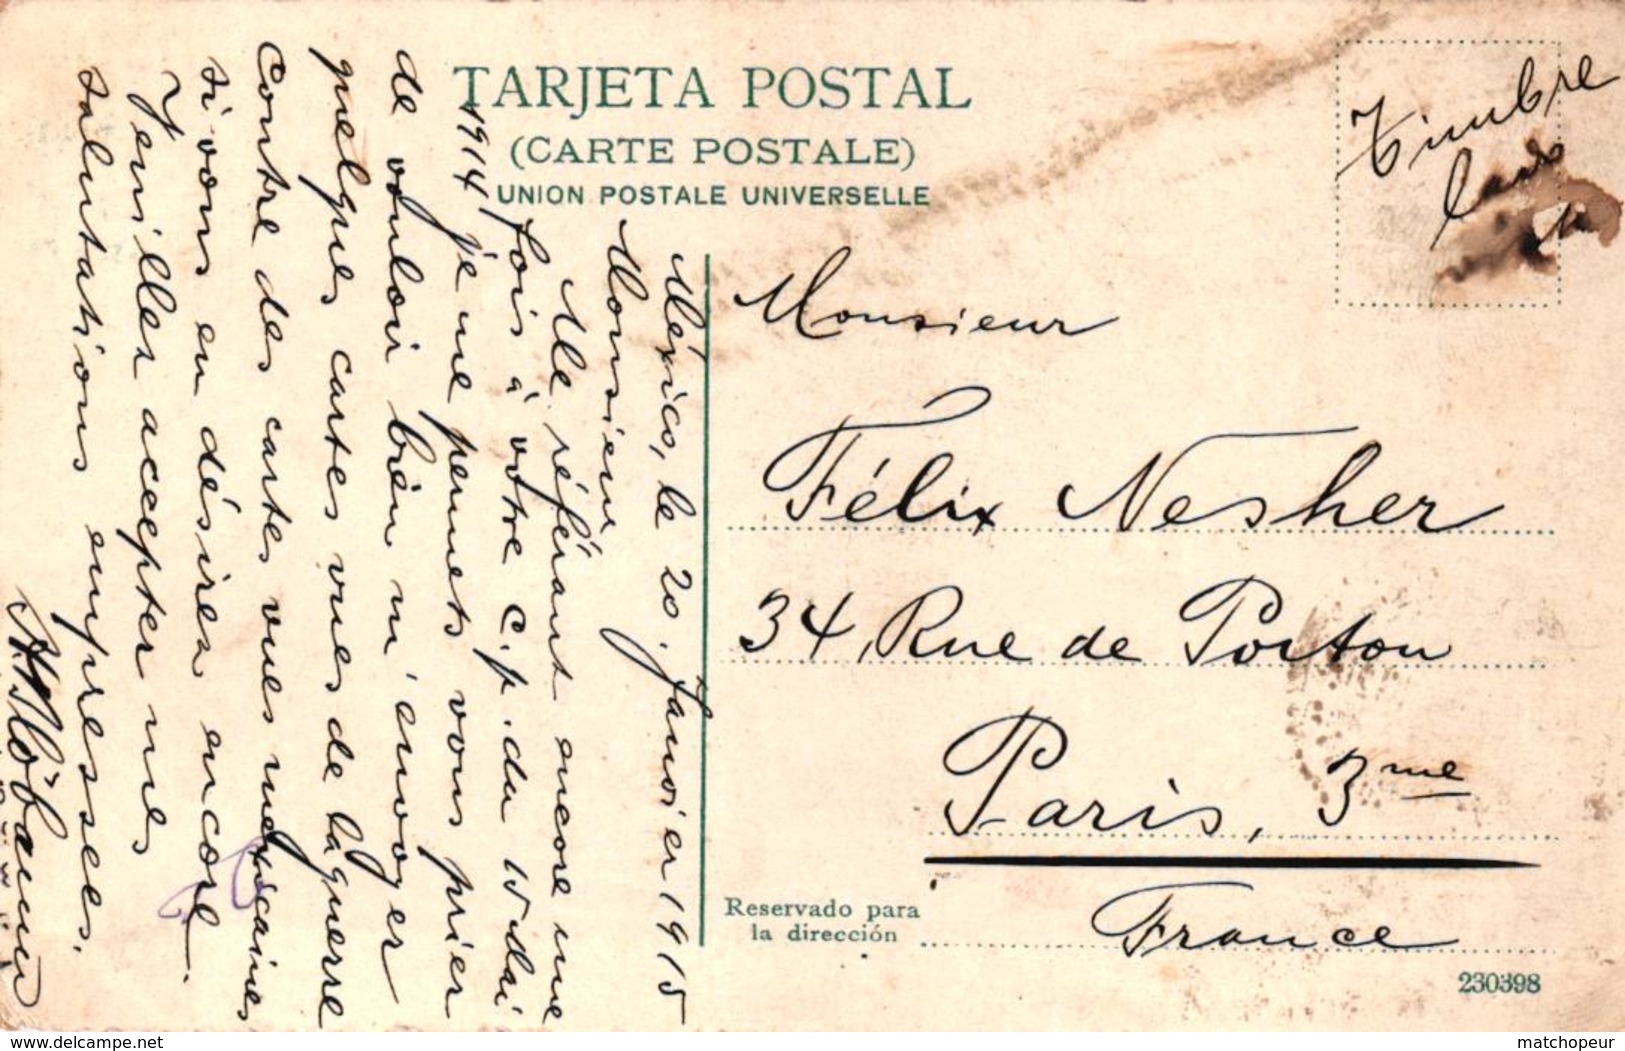 TARJETA POSTAL
(CARTE POSTALE)
UNION POSTALE UNIVERSELLE
Timbre
México, le 20. Janvier 1915
Monsieur
Me référant encore une
fois à votre c.p. du 15 Mai
1914 je me permets vous prier
de vouloir bien m'envoyer
quelques cartes vues de la guerre
contre des cartes vues mexicaines
si vous en désirez encore.
Veuillez accepter mes
salutations empressées.
Monsieur
Félix Nesher
34, Rue de Poitou
Paris, 3me
France
Reservado para
la dirección
230398
delcampe.net
matchopeur